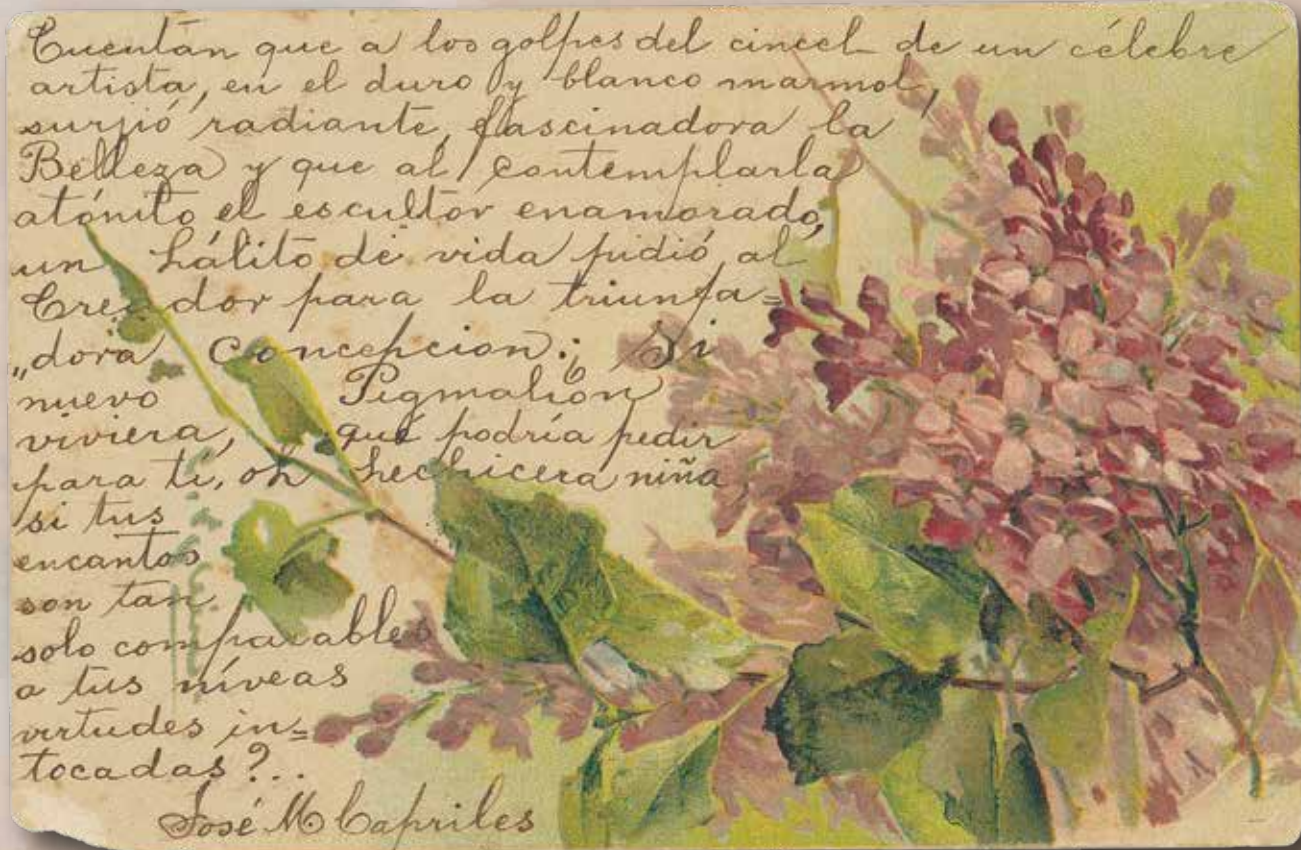 Cuentan que a los golpes del cincel de un célebre
artista, en el duro y blanco marmol,
surjió radiante, fascinadora la
Belleza y que al contemplarla
atónito el escultor enamorado,
un hálito de vida pidió al
Creador para la triunfa=
„dora Concepcion.¿ Si
nuevo Pigmalión
viviera, qué podría pedir
para ti, oh hechicera niña
si tus
encantos
son tan
solo comparables
a tus níveas
virtudes in=
tocadas?..
José M Capriles